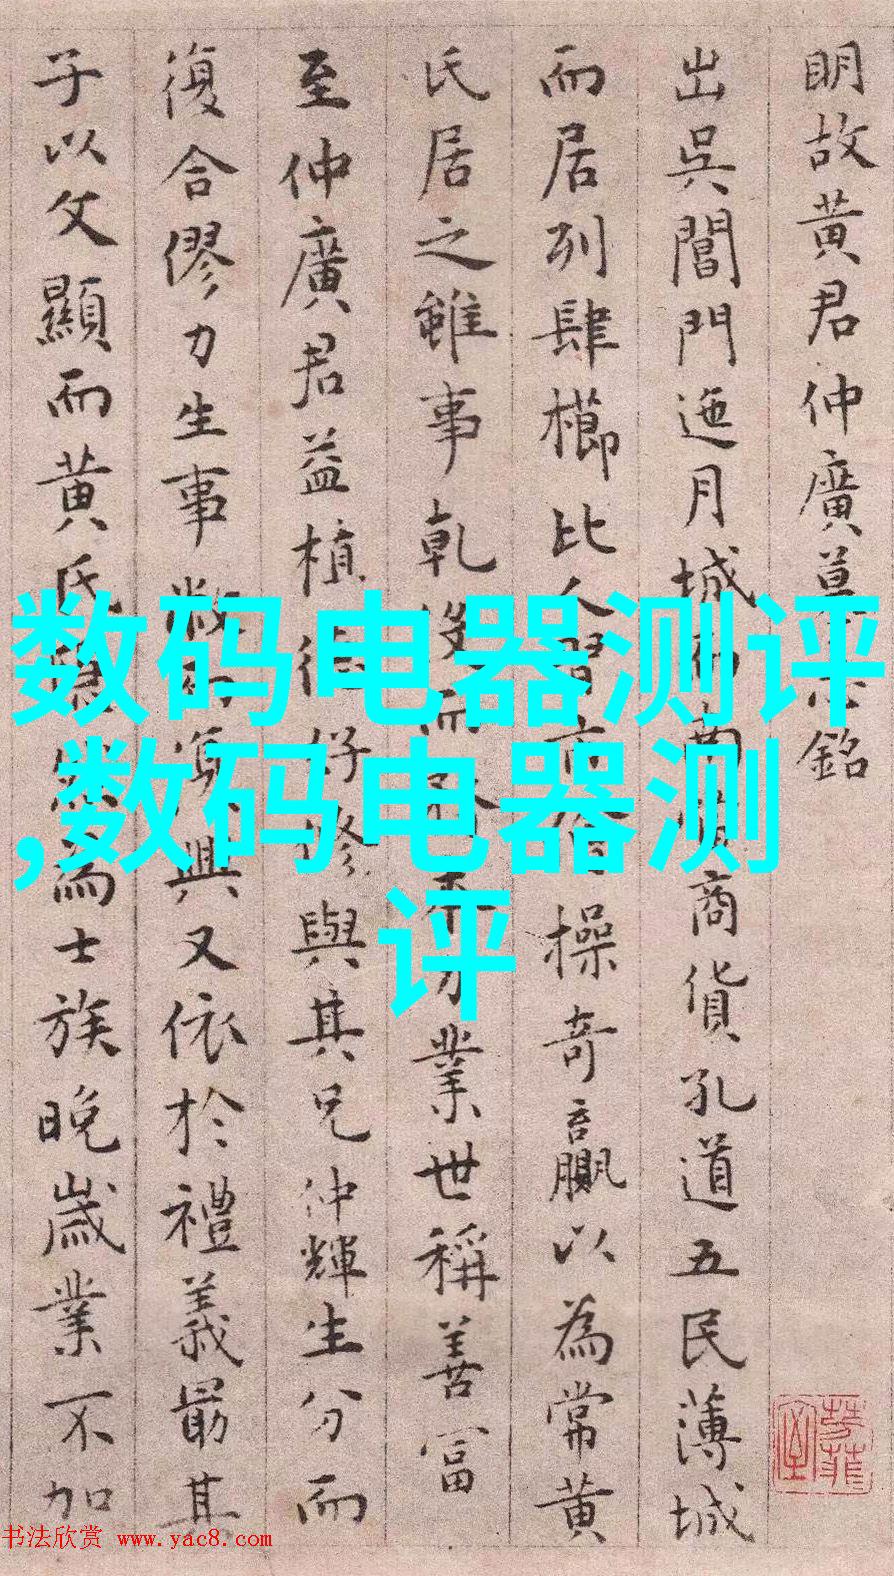 明故黄君仲廣墓志銘
出吳閶門迤月城而南悄商貨孔道五民薄城
而居列肆櫛比人習市操奇贏以為常黄
氏居之雖事乾沒而業世稱善富
至仲廣君益植德好修與其兄仲輝生分而
復合僇力生事興又依於禮義最其
子以文顯而黄氏為士族晚歲業不加
数码电器测评
,数码电器测
评
书法欣赏 www.yac8.com